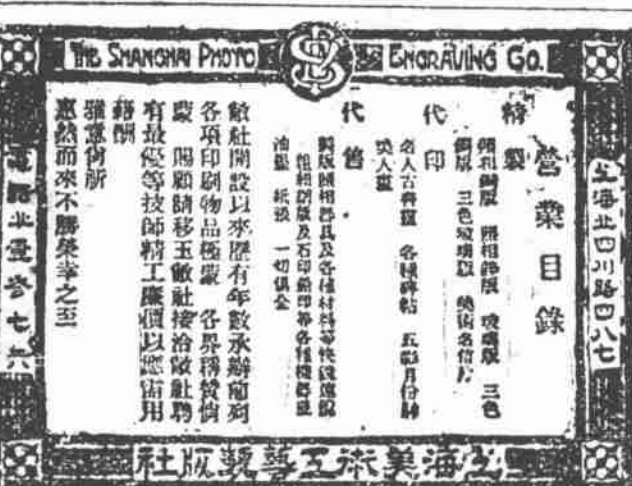 THE SHANGHAI PHOTO ENGRAVING CO.
上海北四川路四八七
營業目錄
精製
照相銅版 照相鋅版 玻璃版 三色
銅版 三色玻璃版 美術名信片
代印
名人古畫 各種碑帖 五彩月份牌
美人畫
代售
銅版照相器具及各種材料
粗細網版及石印鉛印等各種機器
油墨 紙張 一切俱全
敝社開設以來歷有年數承辦
各項印刷物品極蒙 各界稱贊倘
蒙 賜顧請移玉敝社接洽敝社聘
有最優等技師精工廉價以應需用
藉酬
雅意倘祈
惠然而來不勝榮幸之至
電話北壹叁七六
上海美術工藝製版社